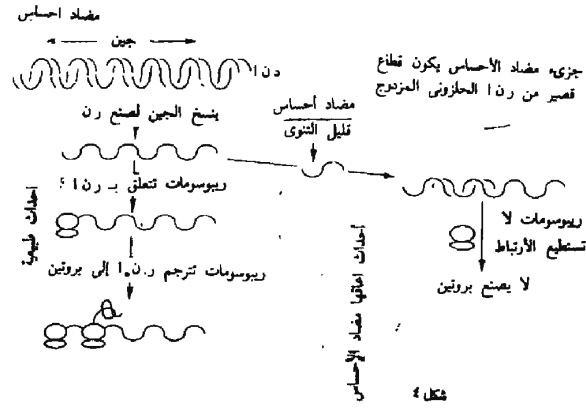 مضاد احساس
جين
دن ا
ينسخ الجين لصنع رن
ريبوسومات تتعلق بـ رن ا ؟
ريبوسومات تترجم ر.ن.ا إلى بروتين
احداث طبيعية
مضاد أحساس
قليل التنوى
أحداث اعاقها مضاد الإحساس
جزىء مضاد الأحساس يكون قطاع
قصير من رن ا الحلزونى المزدوج
ريبوسومات لا
تستطيع الأرتباط
لا يصنع بروتين
شكل ٤